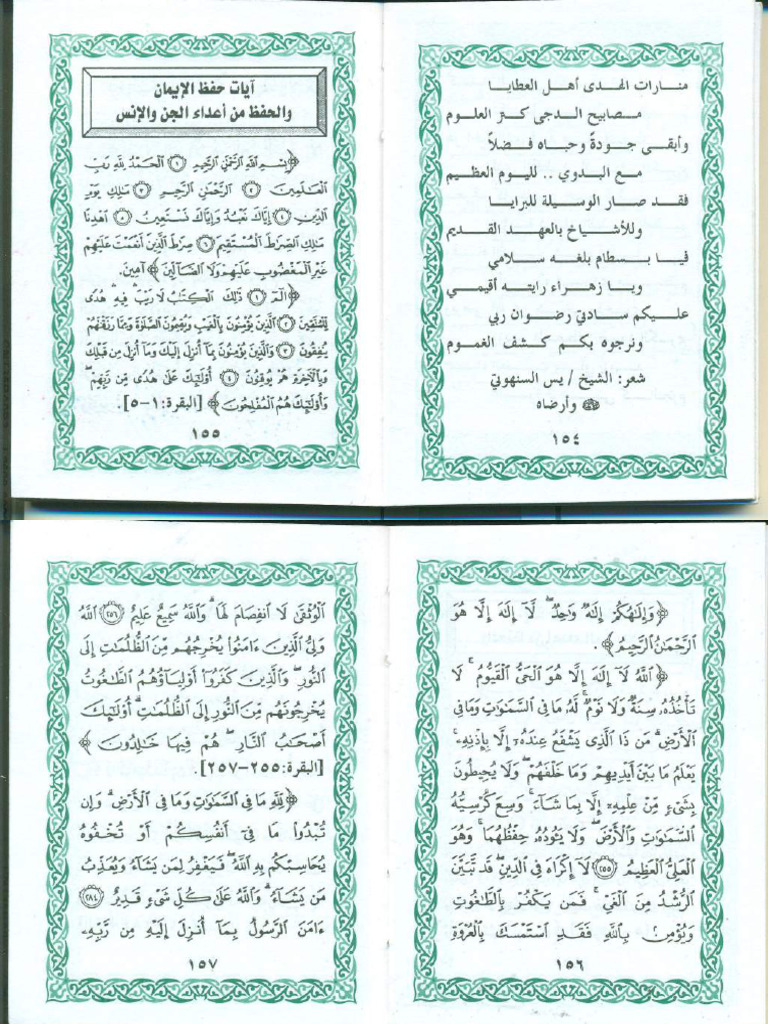 منارات الهدى أهل العطايا
مصابيح الدجى كنز العلوم
وأبقى جودةً وحباه فضلاً
مع البدوي .. لليوم العظيم
فقد صار الوسيلة للبرايا
وللأشياخ بالعهد القديم
فيا بسطام بلغه سلامي
ويا زهراء رايته أقيمي
عليكم سادتي رضوان ربي
ونرجوه بكم كشف الغموم
شعر: الشيخ / يس السنهوتي
وأرضاه
١٥٤
آيات حفظ الإيمان
والحفظ من أعداء الجن والإنس
﴿بِسْمِ اللَّهِ الرَّحْمَٰنِ الرَّحِيمِ ١ الْحَمْدُ لِلَّهِ رَبِّ
الْعَالَمِينَ ٢ الرَّحْمَٰنِ الرَّحِيمِ ٣ مَالِكِ يَوْمِ
الدِّينِ ٤ إِيَّاكَ نَعْبُدُ وَإِيَّاكَ نَسْتَعِينُ ٥ اهْدِنَا
الصِّرَاطَ الْمُسْتَقِيمَ ٦ صِرَاطَ الَّذِينَ أَنْعَمْتَ عَلَيْهِمْ
غَيْرِ الْمَغْضُوبِ عَلَيْهِمْ وَلَا الضَّالِّينَ﴾ آمِينَ.
﴿الم ١ ذَٰلِكَ الْكِتَٰبُ لَا رَيْبَ ۛ فِيهِ ۛ هُدًى
لِلْمُتَّقِينَ ٢ الَّذِينَ يُؤْمِنُونَ بِالْغَيْبِ وَيُقِيمُونَ الصَّلَاةَ وَمِمَّا رَزَقْنَاهُمْ
يُنْفِقُونَ ٣ وَالَّذِينَ يُؤْمِنُونَ بِمَا أُنْزِلَ إِلَيْكَ وَمَا أُنْزِلَ مِنْ قَبْلِكَ
وَبِالْآخِرَةِ هُمْ يُوقِنُونَ ٤ أُولَٰئِكَ عَلَىٰ هُدًى مِنْ رَبِّهِمْ ۖ
وَأُولَٰئِكَ هُمُ الْمُفْلِحُونَ﴾ [البقرة:١-٥].
١٥٥
﴿وَإِلَٰهُكُمْ إِلَٰهٌ وَٰحِدٌ ۖ لَّا إِلَٰهَ إِلَّا هُوَ
الرَّحْمَٰنُ الرَّحِيمُ﴾.
﴿اللَّهُ لَا إِلَٰهَ إِلَّا هُوَ الْحَيُّ الْقَيُّومُ ۚ لَا
تَأْخُذُهُ سِنَةٌ وَلَا نَوْمٌ ۚ لَّهُ مَا فِي السَّمَٰوَٰتِ وَمَا فِي
الْأَرْضِ ۗ مَن ذَا الَّذِي يَشْفَعُ عِندَهُ إِلَّا بِإِذْنِهِ ۚ
يَعْلَمُ مَا بَيْنَ أَيْدِيهِمْ وَمَا خَلْفَهُمْ ۖ وَلَا يُحِيطُونَ
بِشَيْءٍ مِّنْ عِلْمِهِ إِلَّا بِمَا شَاءَ ۚ وَسِعَ كُرْسِيُّهُ
السَّمَٰوَٰتِ وَالْأَرْضَ ۖ وَلَا يَئُودُهُ حِفْظُهُمَا ۚ وَهُوَ
الْعَلِيُّ الْعَظِيمُ ٢٥٥ لَا إِكْرَاهَ فِي الدِّينِ ۖ قَد تَّبَيَّنَ
الرُّشْدُ مِنَ الْغَيِّ ۚ فَمَن يَكْفُرْ بِالطَّٰغُوتِ
وَيُؤْمِنْ بِاللَّهِ فَقَدِ اسْتَمْسَكَ بِالْعُرْوَةِ
١٥٦
الْوُثْقَىٰ لَا انفِصَامَ لَهَا ۗ وَاللَّهُ سَمِيعٌ عَلِيمٌ ٢٥٦ اللَّهُ
وَلِيُّ الَّذِينَ ءَامَنُوا يُخْرِجُهُم مِّنَ الظُّلُمَٰتِ إِلَى
النُّورِ ۖ وَالَّذِينَ كَفَرُوا أَوْلِيَاؤُهُمُ الطَّٰغُوتُ
يُخْرِجُونَهُم مِّنَ النُّورِ إِلَى الظُّلُمَٰتِ ۗ أُولَٰئِكَ
أَصْحَٰبُ النَّارِ ۖ هُمْ فِيهَا خَٰلِدُونَ﴾
[البقرة:٢٥٥-٢٥٧].
﴿لِّلَّهِ مَا فِي السَّمَٰوَٰتِ وَمَا فِي الْأَرْضِ ۗ وَإِن
تُبْدُوا مَا فِي أَنفُسِكُمْ أَوْ تُخْفُوهُ
يُحَاسِبْكُم بِهِ اللَّهُ ۖ فَيَغْفِرُ لِمَن يَشَاءُ وَيُعَذِّبُ
مَن يَشَاءُ ۗ وَاللَّهُ عَلَىٰ كُلِّ شَيْءٍ قَدِيرٌ ٢٨٤
ءَامَنَ الرَّسُولُ بِمَا أُنزِلَ إِلَيْهِ مِن رَّبِّهِ
١٥٧